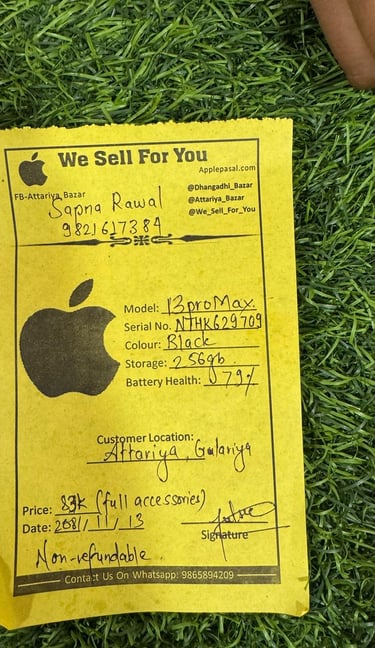 We Sell For You
Applepasal.com
FB-Attariya_Bazar
@Dhangadhi_Bazar
@Attariya_Bazar
@We_Sell_For_You
Sapna Rawal
9821617384
Model: 13proMax.
Serial No. NTHK629709
Colour: Black
Storage: 256gb.
Battery Health: 79%
Customer Location:
Attariya, Gulariya
Price: 83k (full accessories)
Date: 2081/11/13
Signature
Non-refundable
Contact Us On Whatsapp: 9865894209